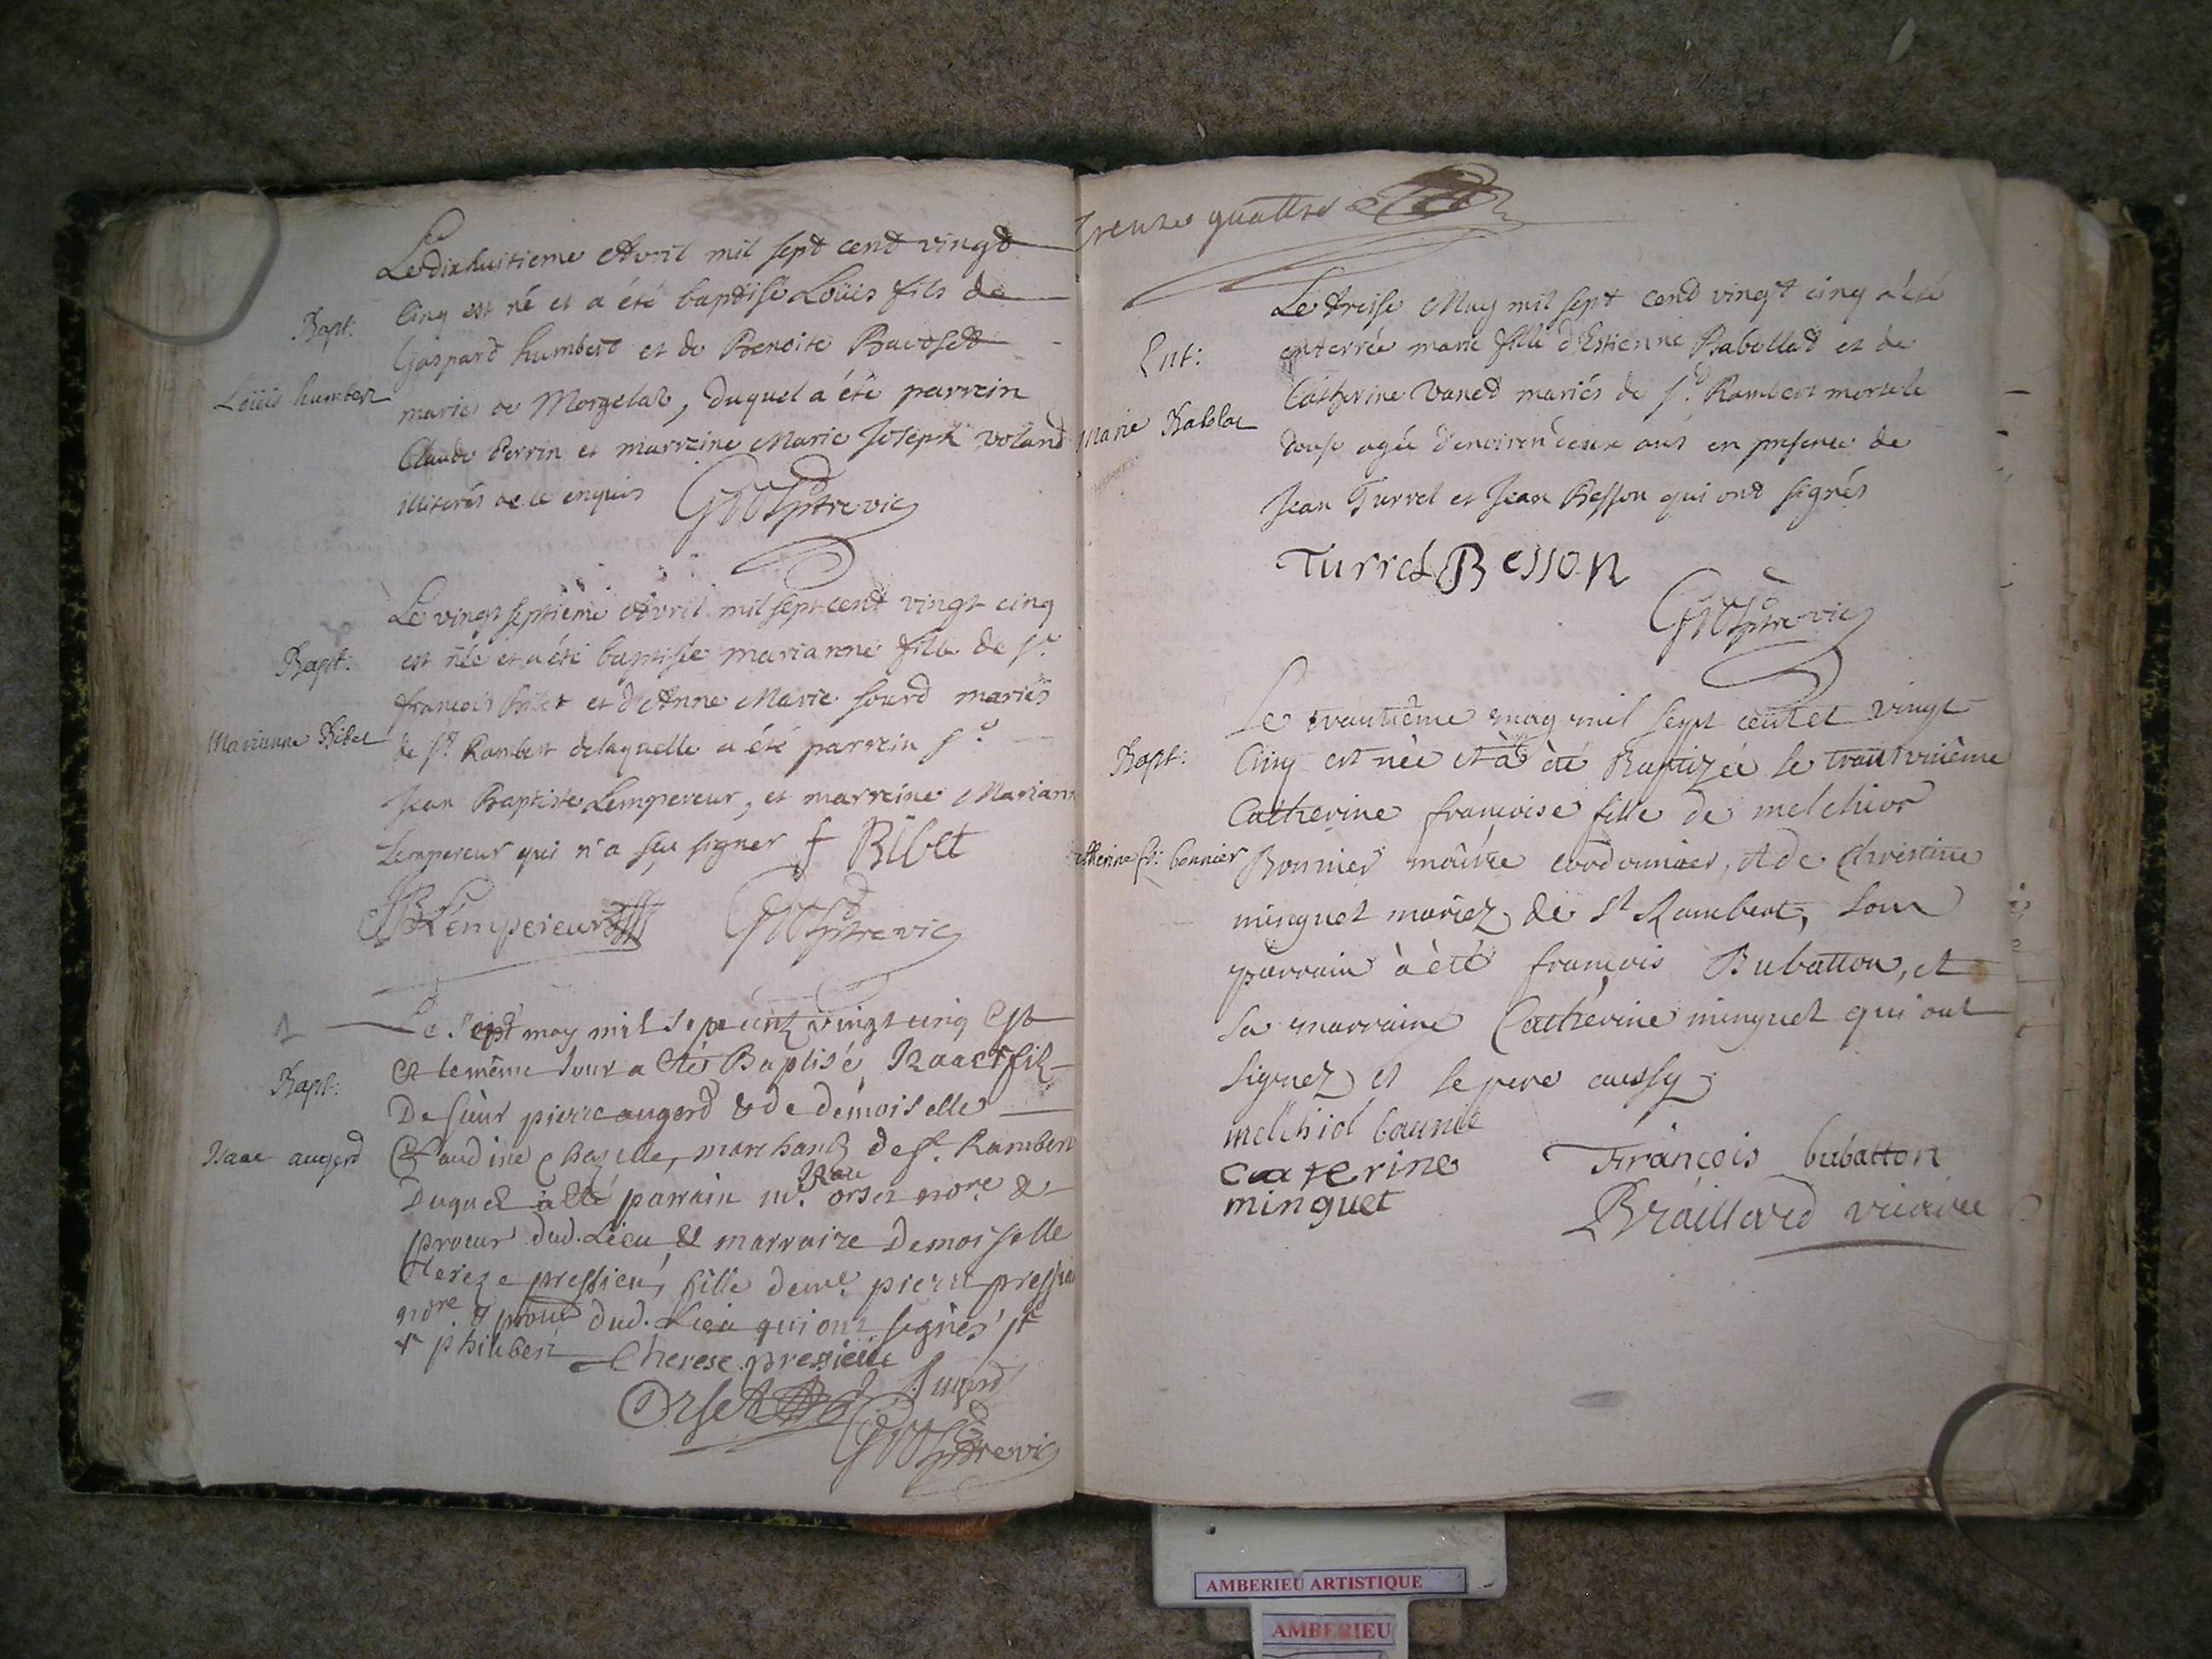 Le dix huitieme Avril mil sept cent vingt
Bapt: Cinq est né et a été baptisé Loüis fils de
Gaspard humbert et de Benoite
Loüis humbert
mariés de Morgelas, duquel a été parrein
Claude Perrin et marreine Marie Joseph voland
illiterés de ce enquis ptre vic
Le vingt septieme Avril mil sept cent vingt cinq
Bapt: est née et a été baptisée marianne fille de sr.
francois Ribet et d'Anne Marie sourd mariés
Marianne Ribet
de st. Rambert de laquelle a été parrein sr.
Jean Baptiste Lempereur, et marreine Mariann
Lempereur qui n'a sçu signer f Ribet
JB Lempereur ptre vic
Le sept may mil sept cent vingt cinq est
Bapt: & le même Jour a été Baptisé Izaac fils
De sieur pierre augerd & de demoiselle
Isaac augerd
Claudine chazelle, marchand de st. Rambert
Duquel a été parrain mr. orset nore. &
procur dud. Lieu & marraine Demoiselle
Tereze pressieu, fille de me. pierre pressieu
nore. & procur dud. Lieu qui ont signés
+ philibert Therese pressieu
Augerd
Orset
ptre vic
trente quattre
Le treise May mil sept cent vingt cinq a été
Ent: enterrée marie fille d'Estienne Babollat et de
Catherine vanet mariés de st. Rambert morte le
Marie Babolat
douse agée d'environ deux ans en presence de
Jean Turrel et Jean Besson qui ont signés
Turrel Besson
ptre vic
Le trantième may mil sept cent et vingt
Bapt: Cinq est née et à été Baptizée le trant unième
Catherine francoise fille de melchior
Catherine fr. bonnier
Bonnier maître cordonnier, et de Christine
minguet mariez de st Rambert, son
parrain à été francois Bubatton, et
sa marraine Catherine minguet qui ont
signez et le pere aussy
melchiol bounie
caterine
minguet
François bubatton
Braillard vicaire
AMBERIEU ARTISTIQUE
AMBERIEU